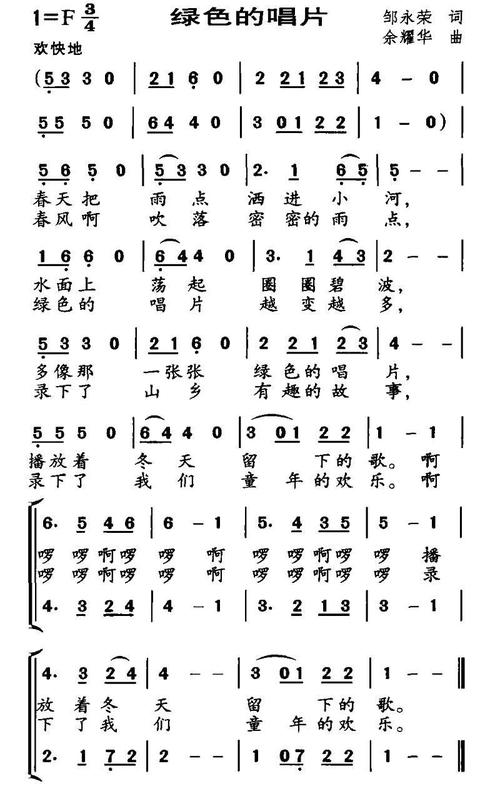 绿色的唱片
1=F 3/4
邹永荣 词
欢快地
余耀华 曲
(5 3 3 0 | 2 1 6 0 | 2 2 2 1 2 3 | 4 - 0 |
5 5 5 0 | 6 4 4 0 | 3 0 1 2 2 | 1 - 0) |
5 6 5 0 | 5 3 3 0 | 2· 1 6 5 | 5 - - |
春天把 雨点 洒进小 河,
春风啊 吹落 密密的雨 点,
1 6 6 0 | 6 4 4 0 | 3· 1 4 3 | 2 - - |
水面上 荡起 圈圈碧 波,
绿色的 唱片 越变越 多,
5 3 3 0 | 2 1 6 0 | 2 2 2 1 2 3 | 4 - - |
多像那 一张张 绿色的唱 片,
录下了 山乡 有趣的故 事,
5 5 5 0 | 6 4 4 0 | 3 0 1 2 2 | 1 - 1 |
播放着 冬天 留 下的歌。啊
录下了 我们 童 年的欢乐。啊
6· 5 4 6 | 6 - 1 | 5· 4 3 5 | 5 - 1 |
啰啰啊啰 啰 啊 啰啰啊啰 啰 播
啰啰啊啰 啰 啊 啰啰啊啰 啰 录
4· 3 2 4 | 4 - 1 | 3· 2 1 3 | 3 - 1 |
4· 3 2 4 | 4 - - | 3 0 1 2 2 | 1 - - ‖
放着冬 天 留 下的歌。
下了我 们 童 年的欢乐。
2· 1 7 2 | 2 - - | 1 0 7 2 2 | 1 - - ‖